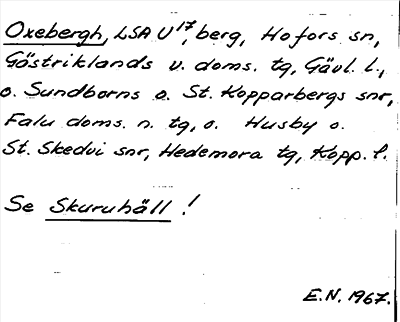 Oxebergh, LSA U¹⁷, berg, Hofors sn,
Gästriklands v. doms. tg, Gävl. l.,
o. Sundborns o. St. Kopparbergs snr,
Falu doms. n. tg, o. Husby o.
St. Skedvi snr, Hedemora tg, Kopp. l.
Se Skuruhäll!
E.N. 1967.